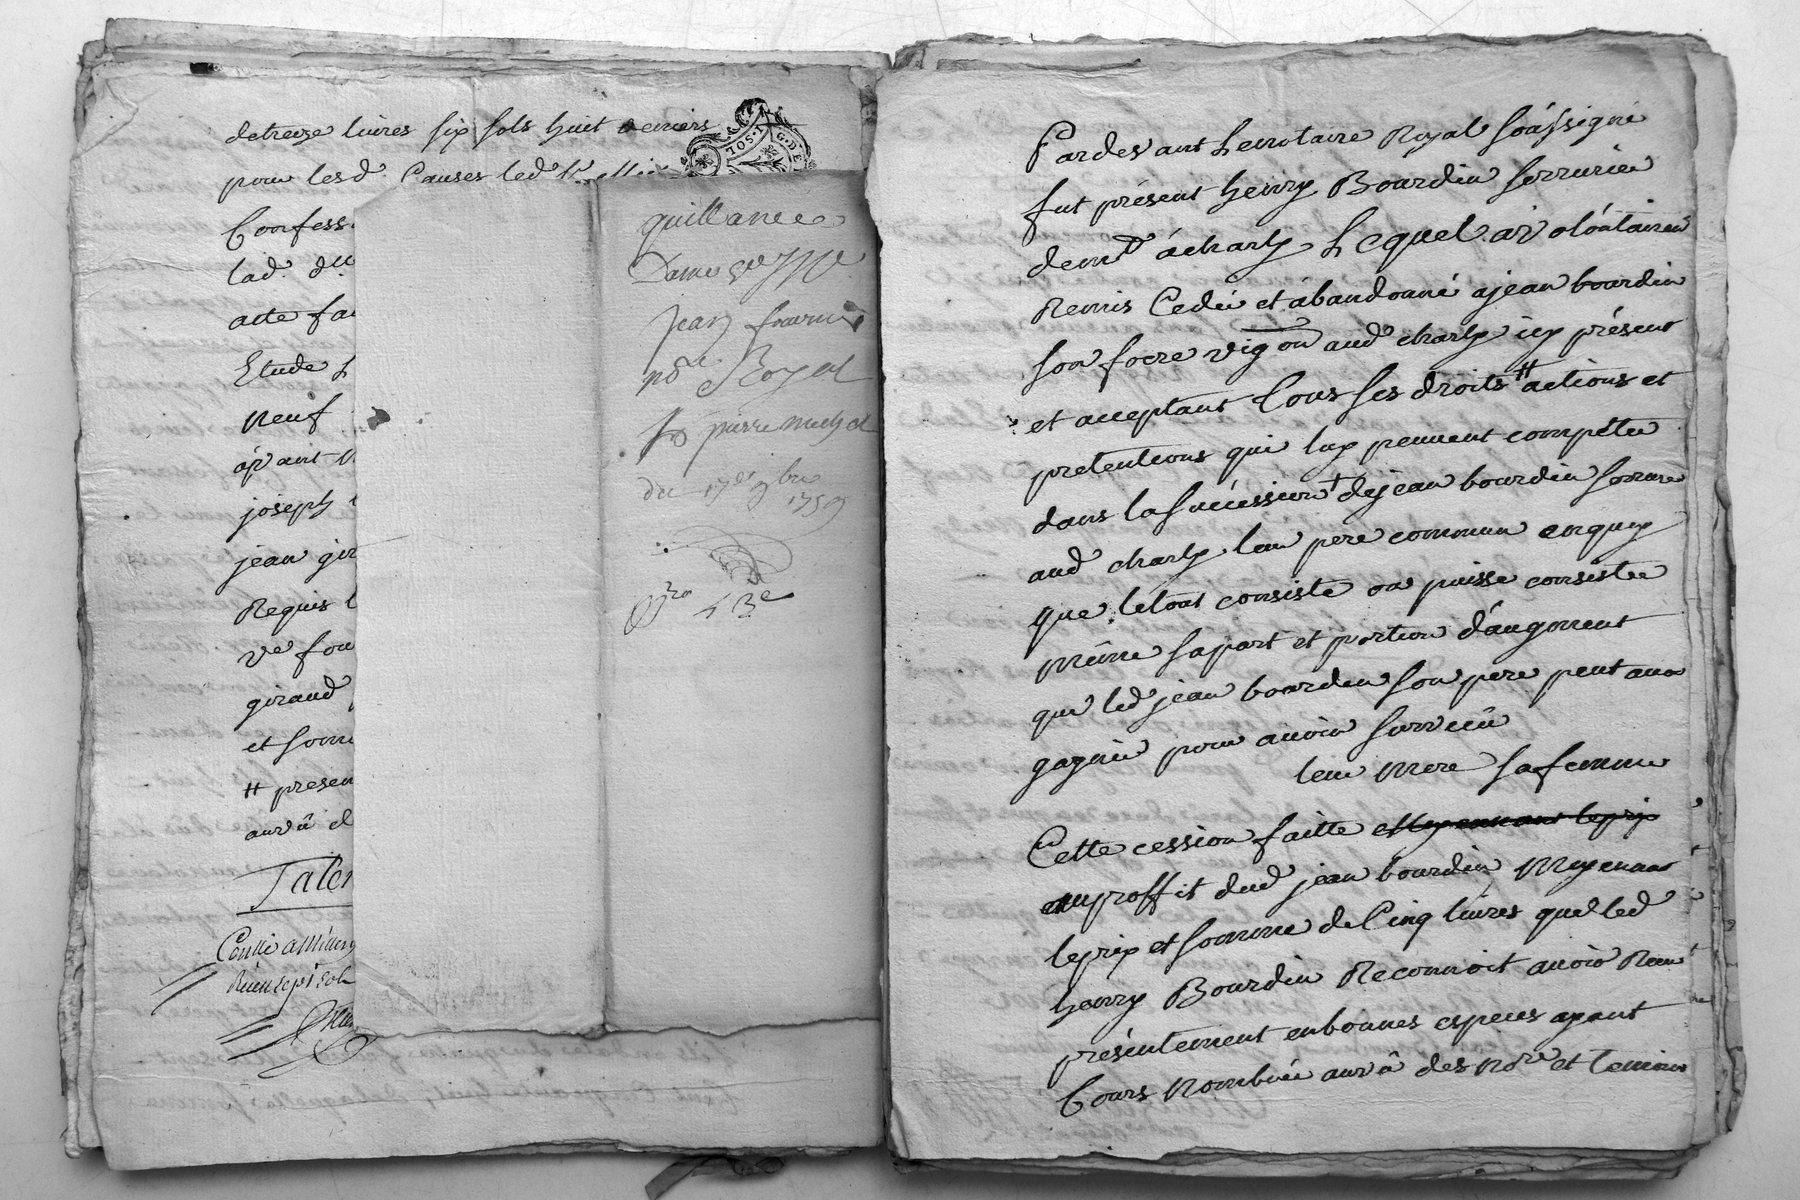 detreize livres six sols huit deniers
pour lesd Causes led
TOS. SOL. G. DE
Confess
lad. d
acte fa
Etude
neuf
avant
joseph
jean gir
Requis
ve fou
giraud
et som
# presen
au vû d
Taler
Con
Reçu sept sols
quittance
Dame
jean fournie
nore Royal
pierre michel
du 17e 9bre
1759
43e
Pardevant Lenotaire Royal soussigné
fut présent henry Bourdin serrurier
demt à charly Lequel a volontairem
Remis Cedé et abandonné ajean bourdin
son frere vigon aud charly icy présent
et acceptant tous ses droits # actions et
pretentions qui luy peuvent compéter
dans la succession + dejean bourdin
aud charly leur pere commun enquoy
que letout consiste ou puisse consister
même sapart et portion d'augment
que led jean bourdin son pere peut avoir
gagné pour avoir survécu
leur mere safemme
Cette cession faitte et moyennant leprix
auproffit dud jean bourdin moyennant
leprix et somme de Cinq livres que led
henry Bourdin Reconnoit avoir Reçu
présentement enbonnes especes ayant
Cours nombrée au vû des nore et temoins